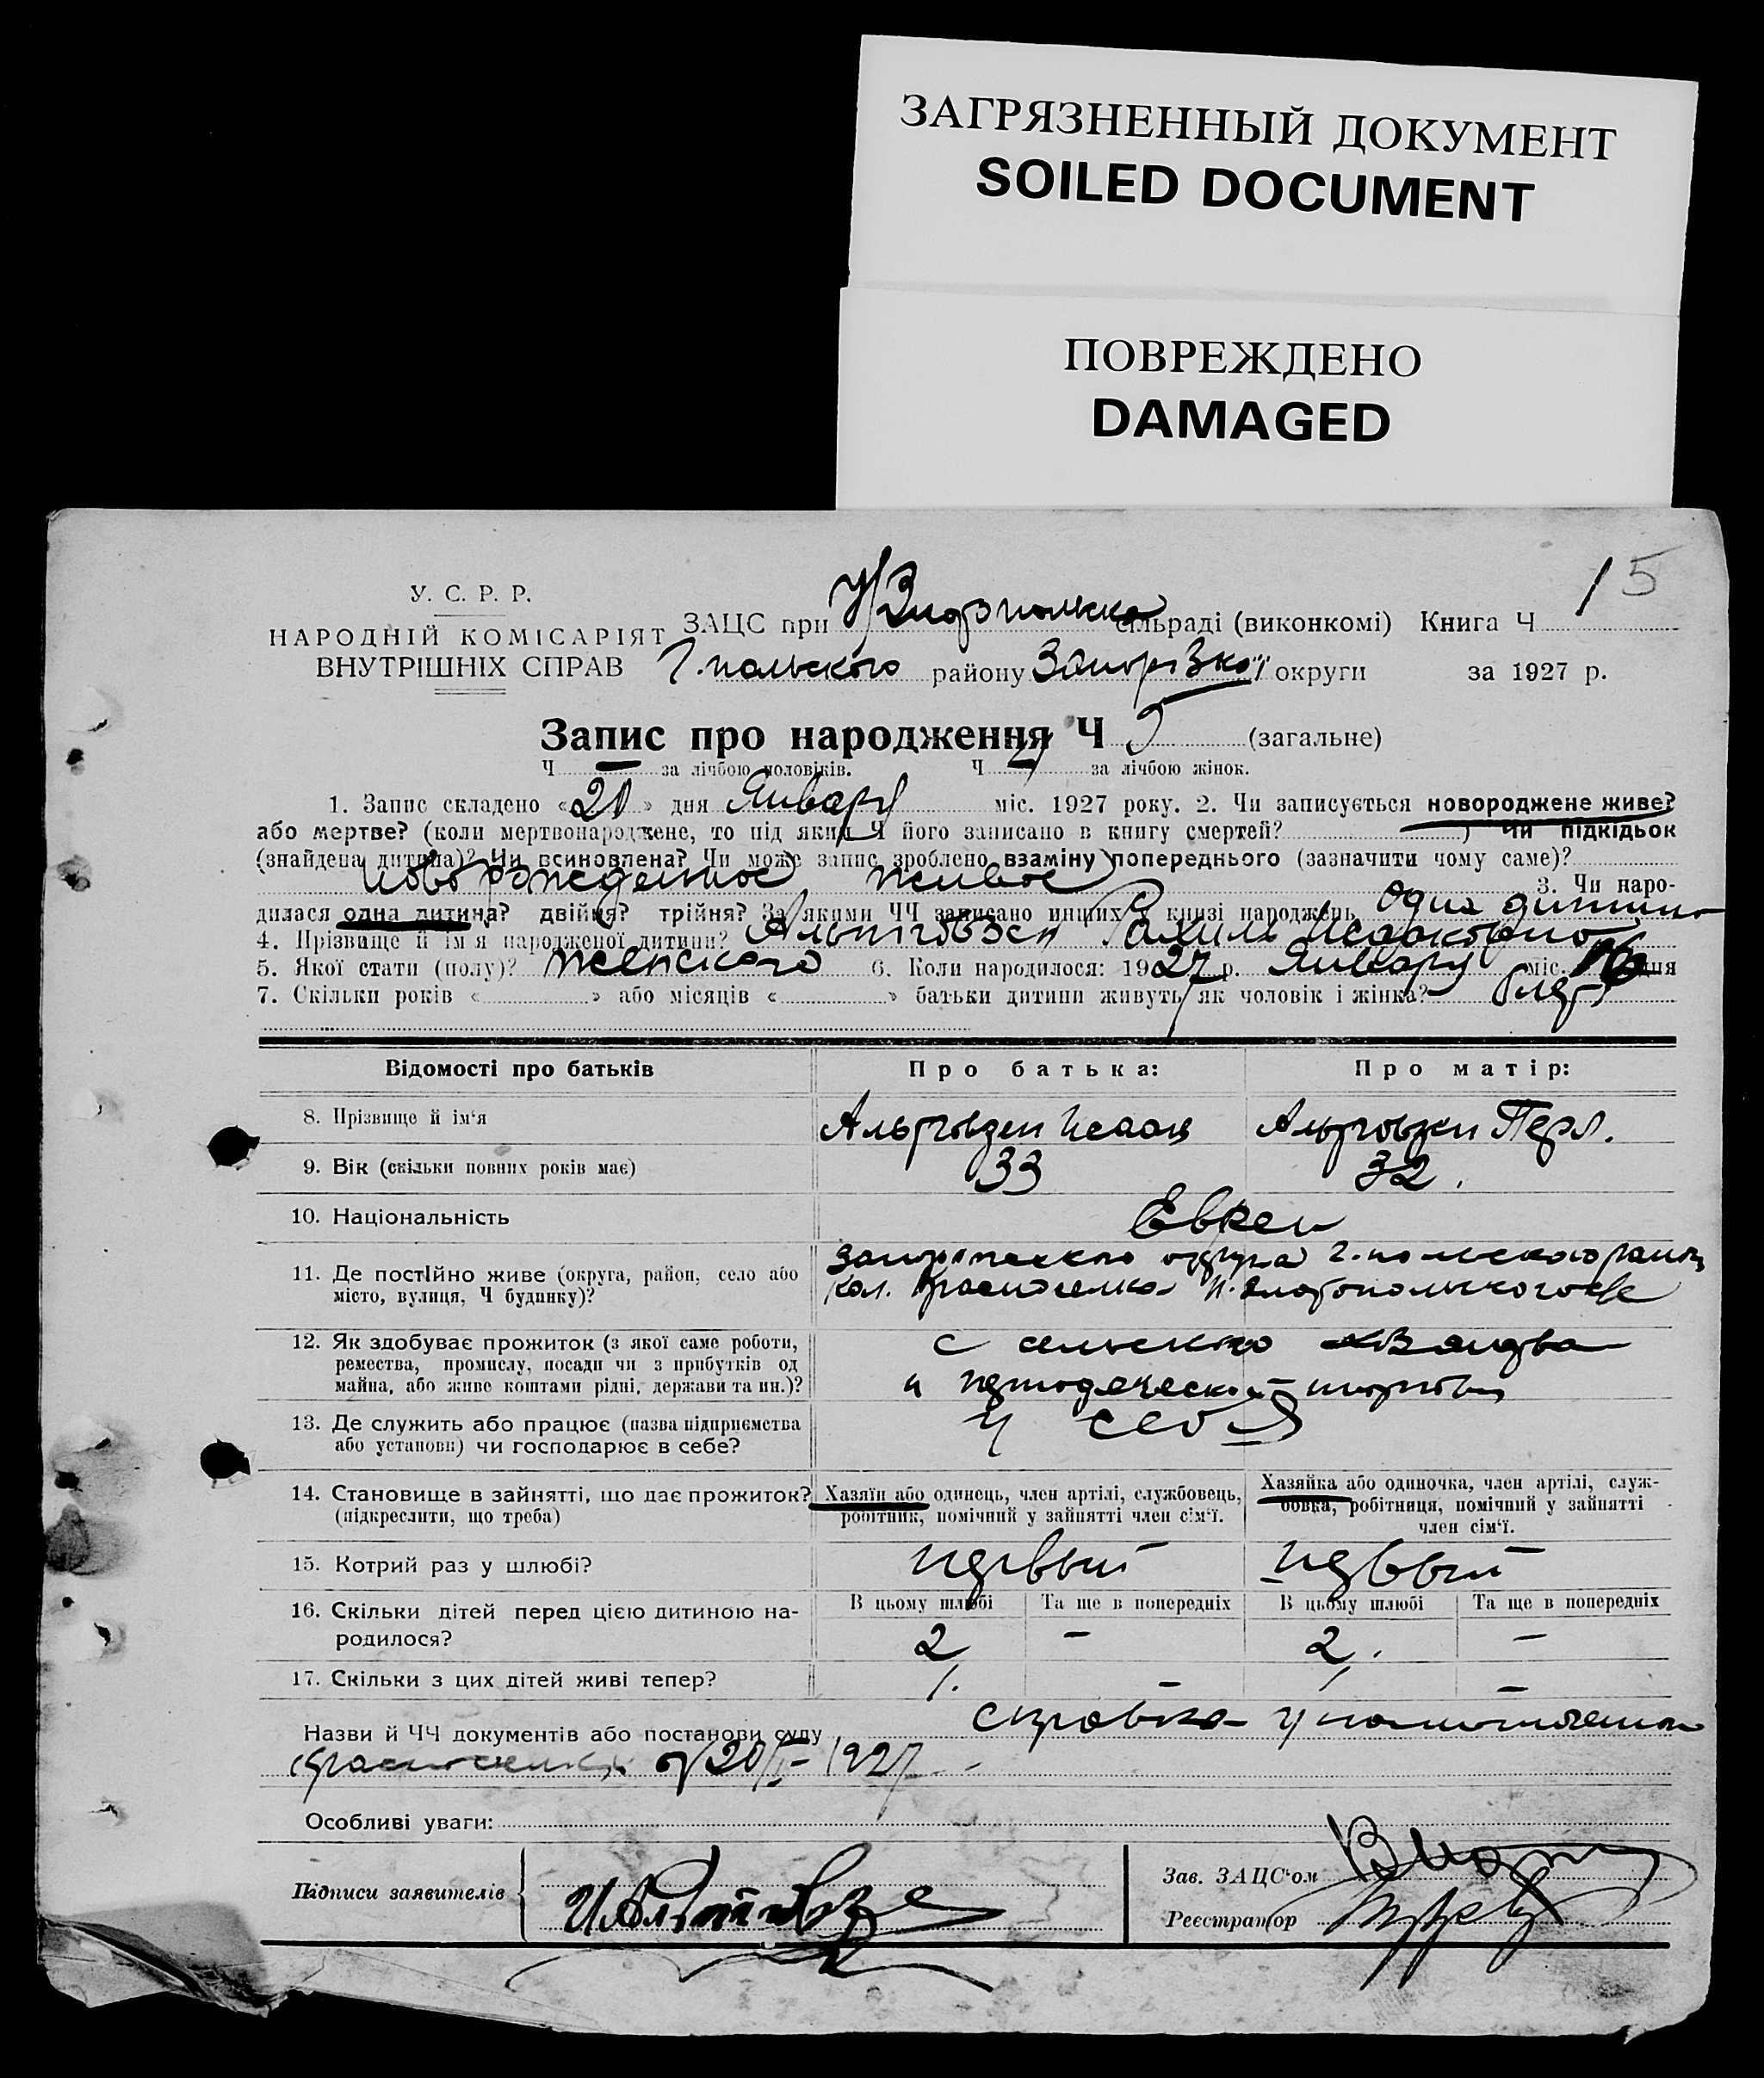 ЗАГРЯЗНЕННЫЙ ДОКУМЕНТ
SOILED DOCUMENT
ПОВРЕЖДЕНО
DAMAGED
15
У. С. Р. Р.
НАРОДНІЙ КОМІСАРІЯТ
ВНУТРІШНІХ СПРАВ
ЗАЦС при сільраді (виконкомі) Книга Ч
Г. польского району Запорізкої округи за 1927 р.
Запис про народження Ч 5 (загальне)
Ч — за лічбою чоловіків. Ч 4 за лічбою жінок.
1. Запис складено «20» дня Январу міс. 1927 року. 2. Чи записується новороджене живе?
або мертве? (коли мертвонароджене, то під яким Ч його записано в книгу смертей? ) чи підкідьок
(знайдена дитина)? Чи всиновлена? Чи може запис зроблено взаміну попереднього (зазначити чому саме)?
Новорожденное живое 3. Чи наро-
дилася одна дитина? двійня? трійня? За якими ЧЧ записано инших у книзі народжень Одна дитина
4. Прізвище й ім'я народженої дитини? Альтговзен Рахиль Исааковна
5. Якої стати (полу)? женского 6. Коли народилося: 1927 р. Январу міс. 16 дня
7. Скільки років « » або місяців « » батьки дитини живуть як чоловік і жінка? 8 лет
Відомості про батьків
Про батька:
Про матір:
8. Прізвище й ім'я Альтговзен Исаак Альтговзен Перл.
9. Вік (скільки повних років має) 33 32.
10. Національність Евреи
11. Де постійно живе (округа, район, село або
місто, вулиця, Ч будинку)?
Запорожского округа г. польского района
кол. Красноселка Н. Златопольского с/с
12. Як здобуває прожиток (з якої саме роботи,
ремества, промислу, посади чи з прибутків од
майна, або живе коштами рідні, держави та ин.)?
с сельского
и
13. Де служить або працює (назва підприємства
або установи) чи господарює в себе?
У себя
14. Становище в зайнятті, що дає прожиток?
(підкреслити, що треба)
Хазяїн або одинець, член артілі, службовець,
робітник, помічний у зайнятті член сім'ї.
Хазяйка або одиночка, член артілі, служ-
бовка, робітниця, помічний у зайнятті
член сім'ї.
15. Котрий раз у шлюбі? первый первый
16. Скільки дітей перед цією дитиною на-
родилося?
В цьому шлюбі Та ще в попередніх В цьому шлюбі Та ще в попередніх
2 — 2 —
17. Скільки з цих дітей живі тепер? 1. — 1 —
Назви й ЧЧ документів або постанови суду справка уполномоченного
Красноселки от 20/I- 1927
Особливі уваги:
Підписи заявителів
И Альтговзе
Зав. ЗАЦС'ом
Реєстратор